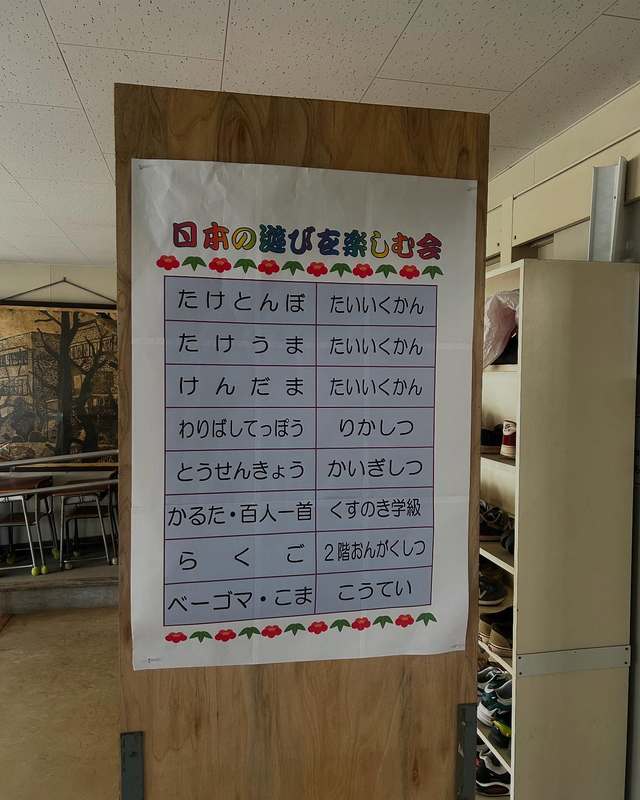 日本の遊びを楽しむ会
たけとんぼ たいいくかん
たけうま たいいくかん
けんだま たいいくかん
わりばしてっぽう りかしつ
とうせんきょう かいぎしつ
かるた・百人一首 くすのき学級
らくご 2階おんがくしつ
ベーゴマ・こま こうてい